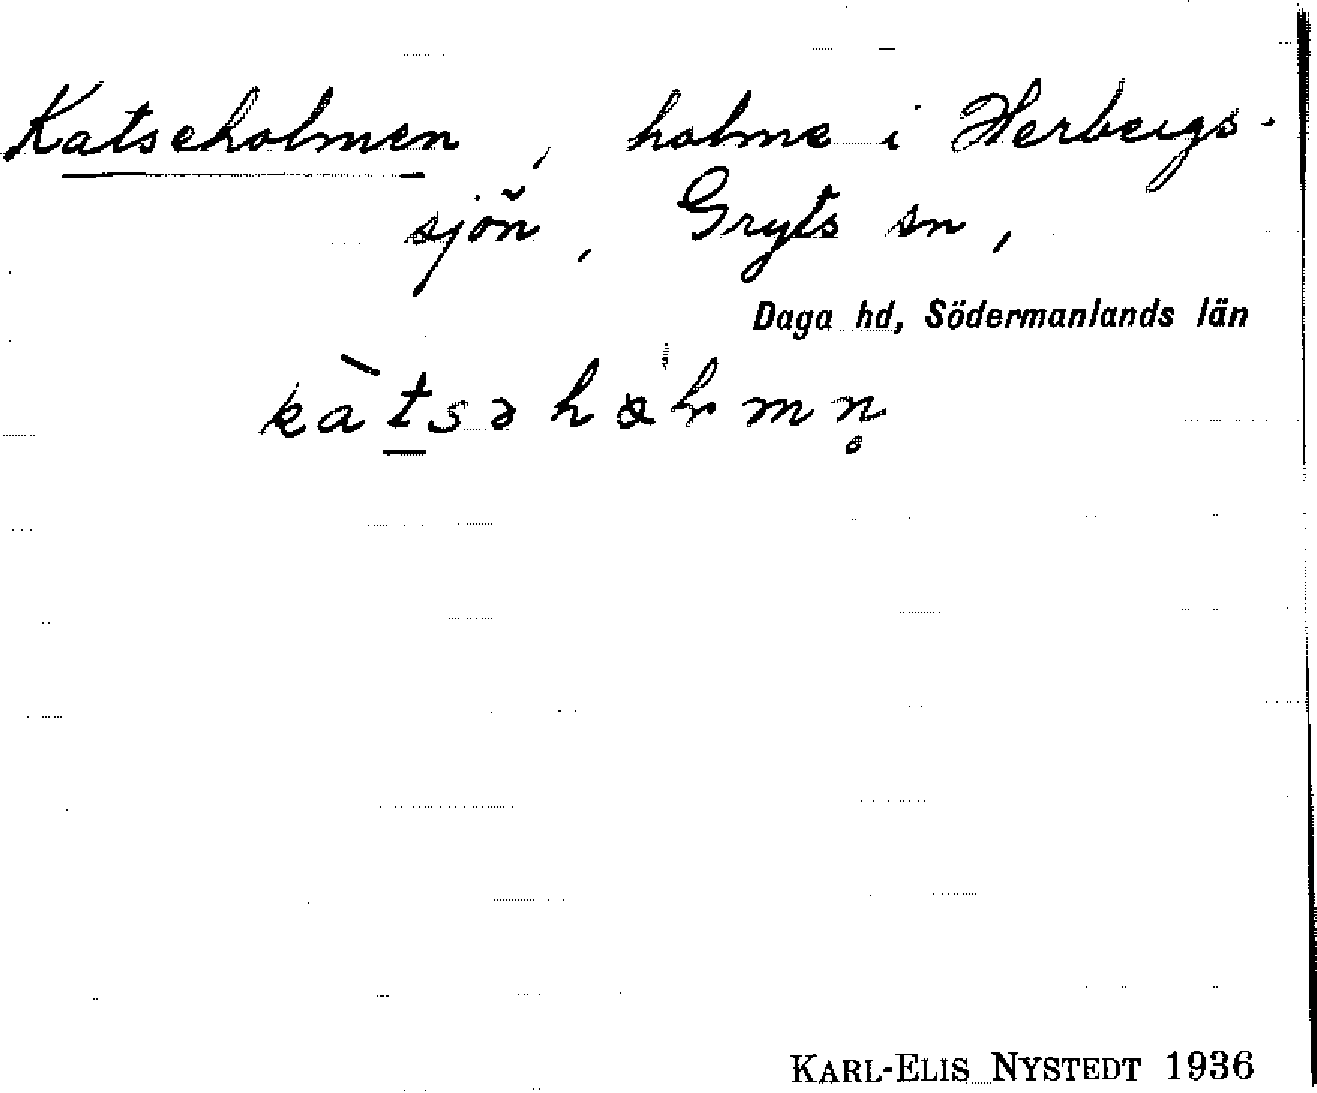 Katseholmen, holme i Herbergs-
sjön, Gryts sn,
Daga hd, Södermanlands län
kàtsəhɑ̀lmn̥
KARL-ELIS NYSTEDT 1936